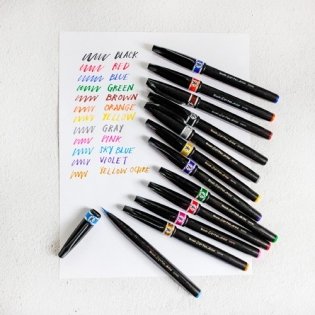 BLACK
RED
BLUE
GREEN
BROWN
ORANGE
YELLOW
GRAY
PINK
SKY BLUE
VIOLET
YELLOW OCHRE